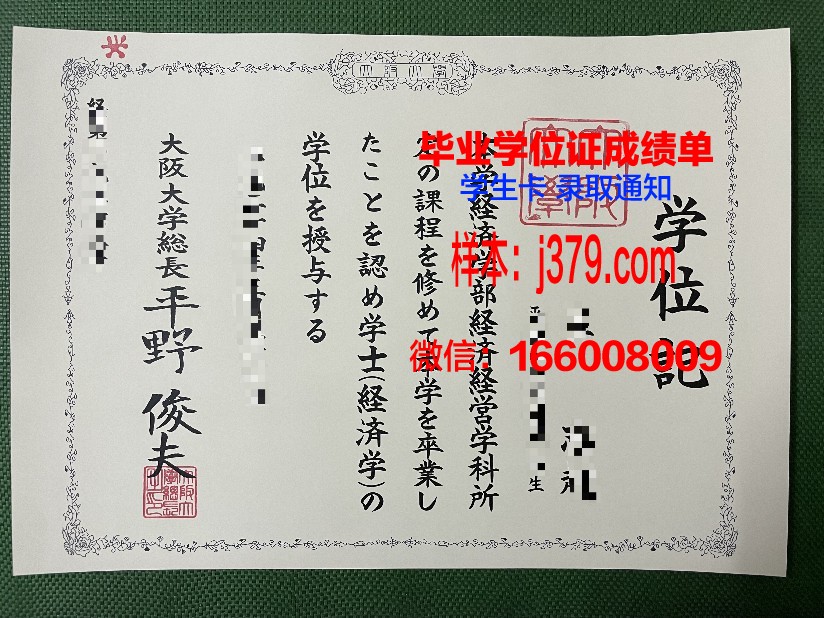 学位記
生
本学経済学部経済経営学科所
定の課程を修めて本学を卒業し
たことを認め学士(経済学)の
学位を授与する
大阪大学総長 平野俊夫
毕业学位证成绩单
学生卡 录取通知
样本: j379.com
微信: 166008009